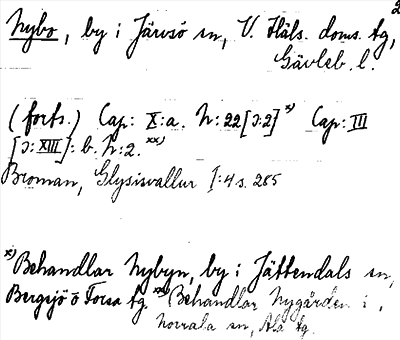 2
Nybo, by i Järvsö sn, V. Häls. doms. tg,
Gävleb. l.
(forts.) Cap: X:a. N:22 [ɔ:2] x) Cap: III
[ɔ: XIII]: b. N:2. xx)
Broman, Glysisvallur I:4 s. 285
x) Behandlar Nybyn, by i Jättendals sn,
Bergsjö o Forsa tg. xx) Behandlar Nygården i
Norrala sn, Ala tg.